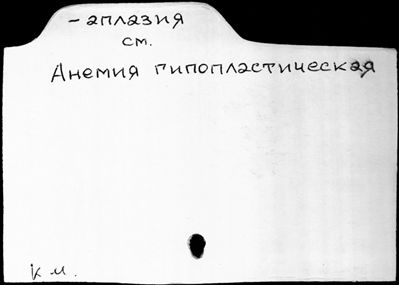 - аплазия
см.
Анемия гипопластическая
К м.